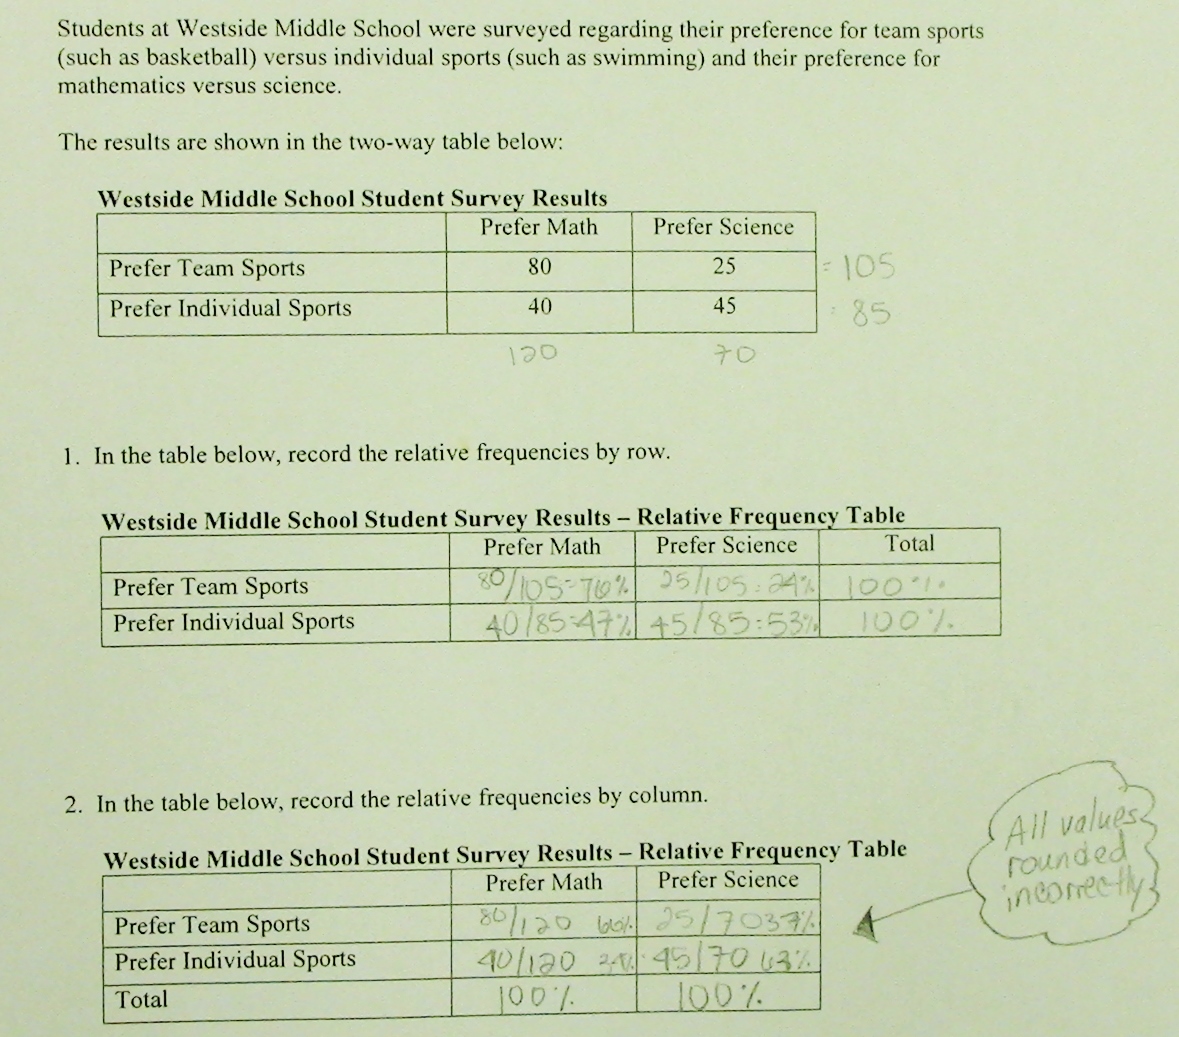 Students at Westside Middle School were surveyed regarding their preference for team sports
(such as basketball) versus individual sports (such as swimming) and their preference for
mathematics versus science.
The results are shown in the two-way table below:
Westside Middle School Student Survey Results
Prefer Math Prefer Science
Prefer Team Sports 80 25 = 105
Prefer Individual Sports 40 45 : 85
120 70
1. In the table below, record the relative frequencies by row.
Westside Middle School Student Survey Results – Relative Frequency Table
Prefer Math Prefer Science Total
Prefer Team Sports 80/105=76% 25/105:24% 100%
Prefer Individual Sports 40/85=47% 45/85:53% 100%
2. In the table below, record the relative frequencies by column.
Westside Middle School Student Survey Results – Relative Frequency Table
Prefer Math Prefer Science
Prefer Team Sports 80/120 66% 25/70 37%
Prefer Individual Sports 40/120 45/70 63%
Total 100% 100%
All values
rounded
incorrectly